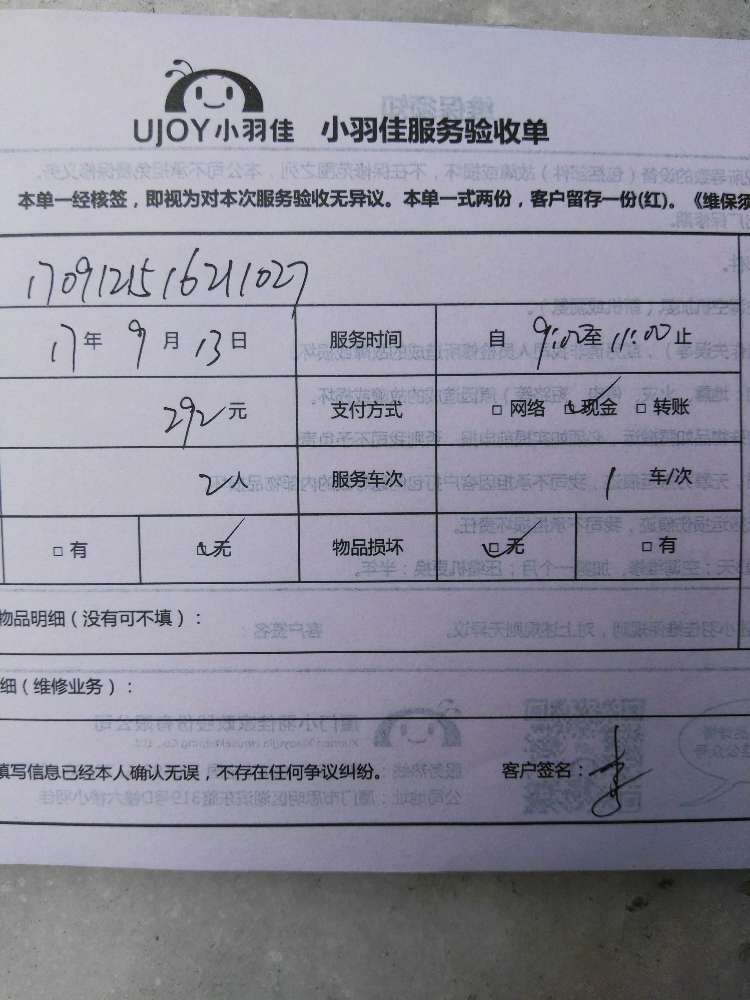 UJOY小羽佳 小羽佳服务验收单
本单一经核签，即视为对本次服务验收无异议。本单一式两份，客户留存一份(红)。《维保须
1709121516211027
17年9月13日 服务时间 自9:00至11:00止
292元 支付方式 □ 网络 ☑ 现金 □ 转账
2人 服务车次 1 车/次
□ 有 ☑ 无 物品损坏 ☑ 无 □ 有
物品明细（没有可不填）：
细（维修业务）：
填写信息已经本人确认无误，不存在任何争议纠纷。 客户签名：李